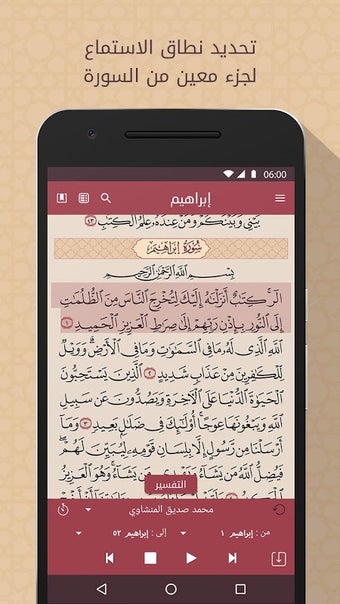 تحديد نطاق الاستماع
لجزء معين من السورة
06:00
إبراهيم
بَيْنِي وَبَيْنَكُمْ وَمَنْ عِندَهُۥ عِلْمُ ٱلْكِتَٰبِ ٤٣
سُورَةُ إِبْرَاهِيمَ
بِسْمِ ٱللَّهِ ٱلرَّحْمَٰنِ ٱلرَّحِيمِ
الٓر كِتَٰبٌ أَنزَلْنَٰهُ إِلَيْكَ لِتُخْرِجَ ٱلنَّاسَ مِنَ ٱلظُّلُمَٰتِ
إِلَى ٱلنُّورِ بِإِذْنِ رَبِّهِمْ إِلَىٰ صِرَٰطِ ٱلْعَزِيزِ ٱلْحَمِيدِ ١
ٱللَّهِ ٱلَّذِى لَهُۥ مَا فِى ٱلسَّمَٰوَٰتِ وَمَا فِى ٱلْأَرْضِ وَوَيْلٌ
لِّلْكَٰفِرِينَ مِنْ عَذَابٍ شَدِيدٍ ٢ ٱلَّذِينَ يَسْتَحِبُّونَ
ٱلْحَيَوٰةَ ٱلدُّنْيَا عَلَى ٱلْءَاخِرَةِ وَيَصُدُّونَ عَن سَبِيلِ
ٱللَّهِ وَيَبْغُونَهَا عِوَجًا أُو۟لَٰٓئِكَ فِى ضَلَٰلٍۭ بَعِيدٍ ٣ وَمَآ
أَرْسَلْنَا مِن رَّسُولٍ إِلَّا بِلِسَانِ قَوْمِهِۦ لِيُبَيِّنَ لَهُمْ
فَيُضِلُّ ٱللَّهُ مَن يَشَآءُ وَيَهْدِى مَن يَشَآءُ وَهُوَ ٱلْعَزِيزُ
التفسير
محمد صديق المنشاوي
من: إبراهيم ١
إلى: إبراهيم ٥٢